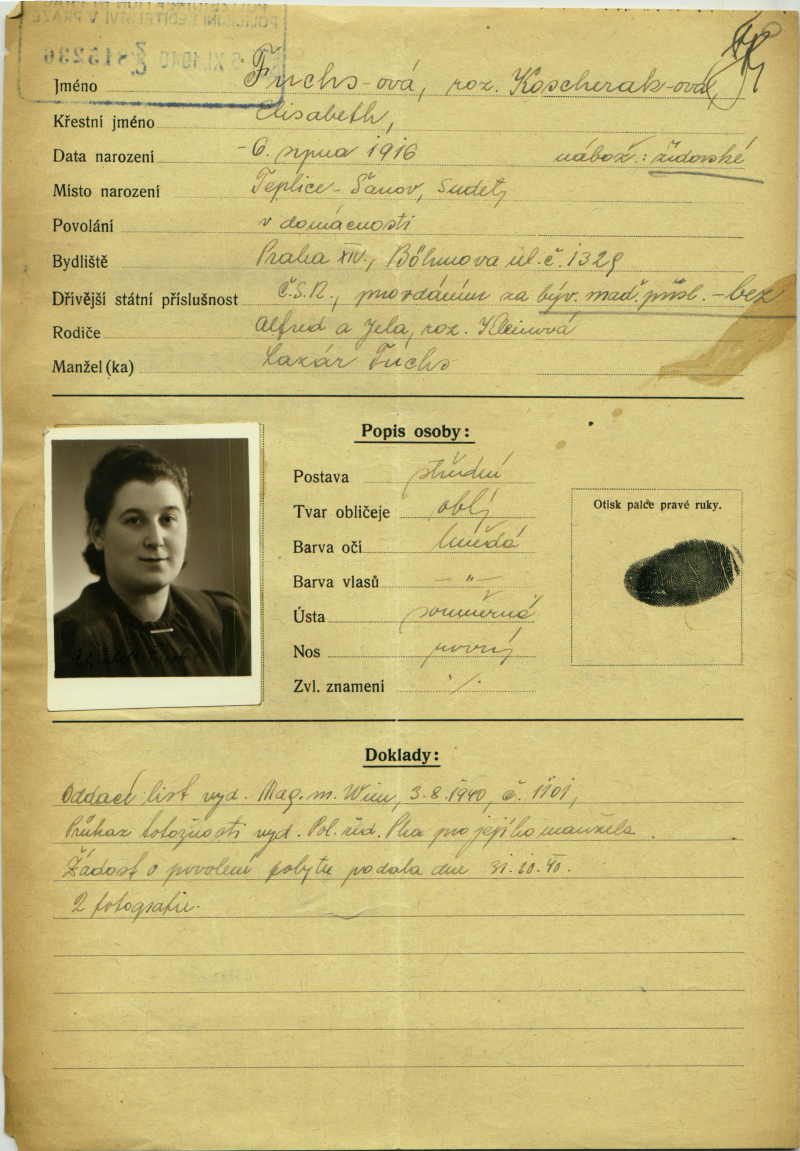 POLICEJNÍ ŘEDITELSTVÍ V PRAZE
XI. 1940 815236
Jméno Fuchs-ová, roz. Koscherak-ová
Křestní jméno Elisabeth,
Data narození 6. srpna 1916 nábož.: židovské
Místo narození Teplice-Šanov, Sudety
Povolání v domácnosti
Bydliště Praha XIV., Böhmova ul. č. 1329
Dřívější státní příslušnost Č.S.R., provdáním za býv. maď. přísl. - bez
Rodiče Alfred a Jela, roz. Kleinová
Manžel (ka) Lazár Fuchs
Popis osoby:
Postava střední
Tvar obličeje oblý
Barva očí hnědá
Barva vlasů - „ -
Ústa souměrná
Nos rovný
Zvl. znamení ./.
Otisk palce pravé ruky.
Doklady:
Oddací list vyd. Mag. m. Wien, 3.8.1940, č. 1101,
Průkaz totožnosti vyd. Pol. řed. Pha pro jejího manžela.
Žádost o povolení pobytu podala dne 31.10.40.
2 fotografie.